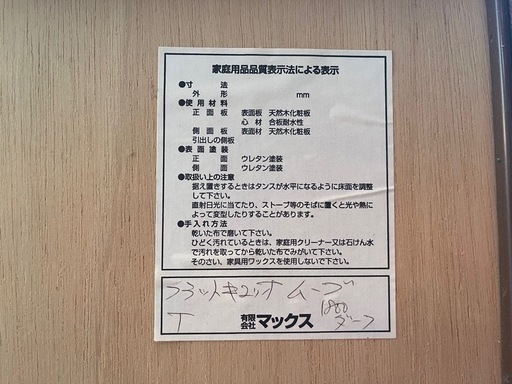 家庭用品品質表示法による表示
●寸法
外形 mm
●使用材料
正面板 表面板 天然木化粧板
心材 合板耐水性
側面板 表面材 天然木化粧板
引出しの側板
●表面塗装
正面 ウレタン塗装
側面 ウレタン塗装
●取扱い上の注意
据え置きするときはタンスが水平になるように床面を調整
して下さい。
直射日光に当たり、ストーブ等のそばに置くと光や熱に
よって変型したりすることがあります。
●手入れ方法
乾いた布で磨いて下さい。
ひどく汚れているときは、家庭用クリーナー又は石けん水
で汚れを取ってから乾いた布でみがいて下さい。
そのさい、家具用ワックスを使用しないで下さい。
ムーブ
T 1800
ダーク
有限会社マックス